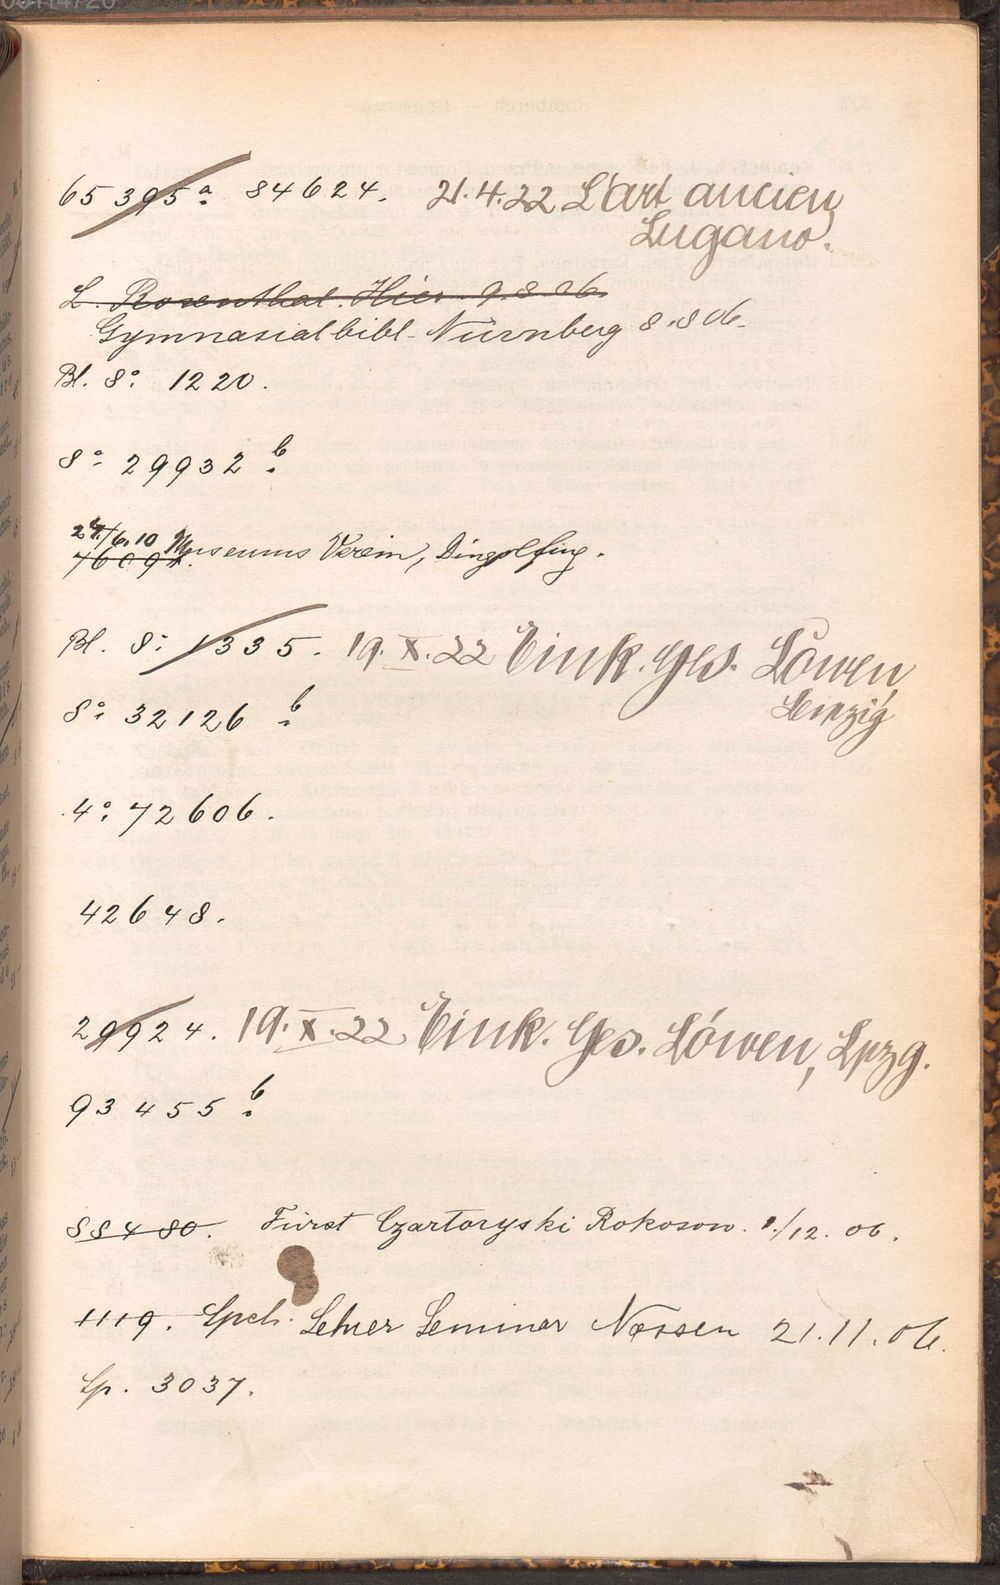 65395a. 84624. 21.4.22 L'art ancien
Lugano.
L. Rosenthal Hier 9.8.06.
Gymnasialbibl. Nürnberg 8.8.06.
Bl. 8° 1220.
8° 29932 b.
24/6.10 Museums Verein, Dingolfing.
76091.
Bl. 8° 1335. 19.X.22 Eink. Ges. Löwen,
Leipzig
8° 32126 b.
4° 72606.
42648.
29924. 19.X.22 Eink. Ges. Löwen, Lpzg.
93455 b.
88480. Fürst Czartoryski Rokosow. 1./12. 06.
1119. Spch. Lehrer Seminar Nossen 21.11.06.
Sp. 3037.